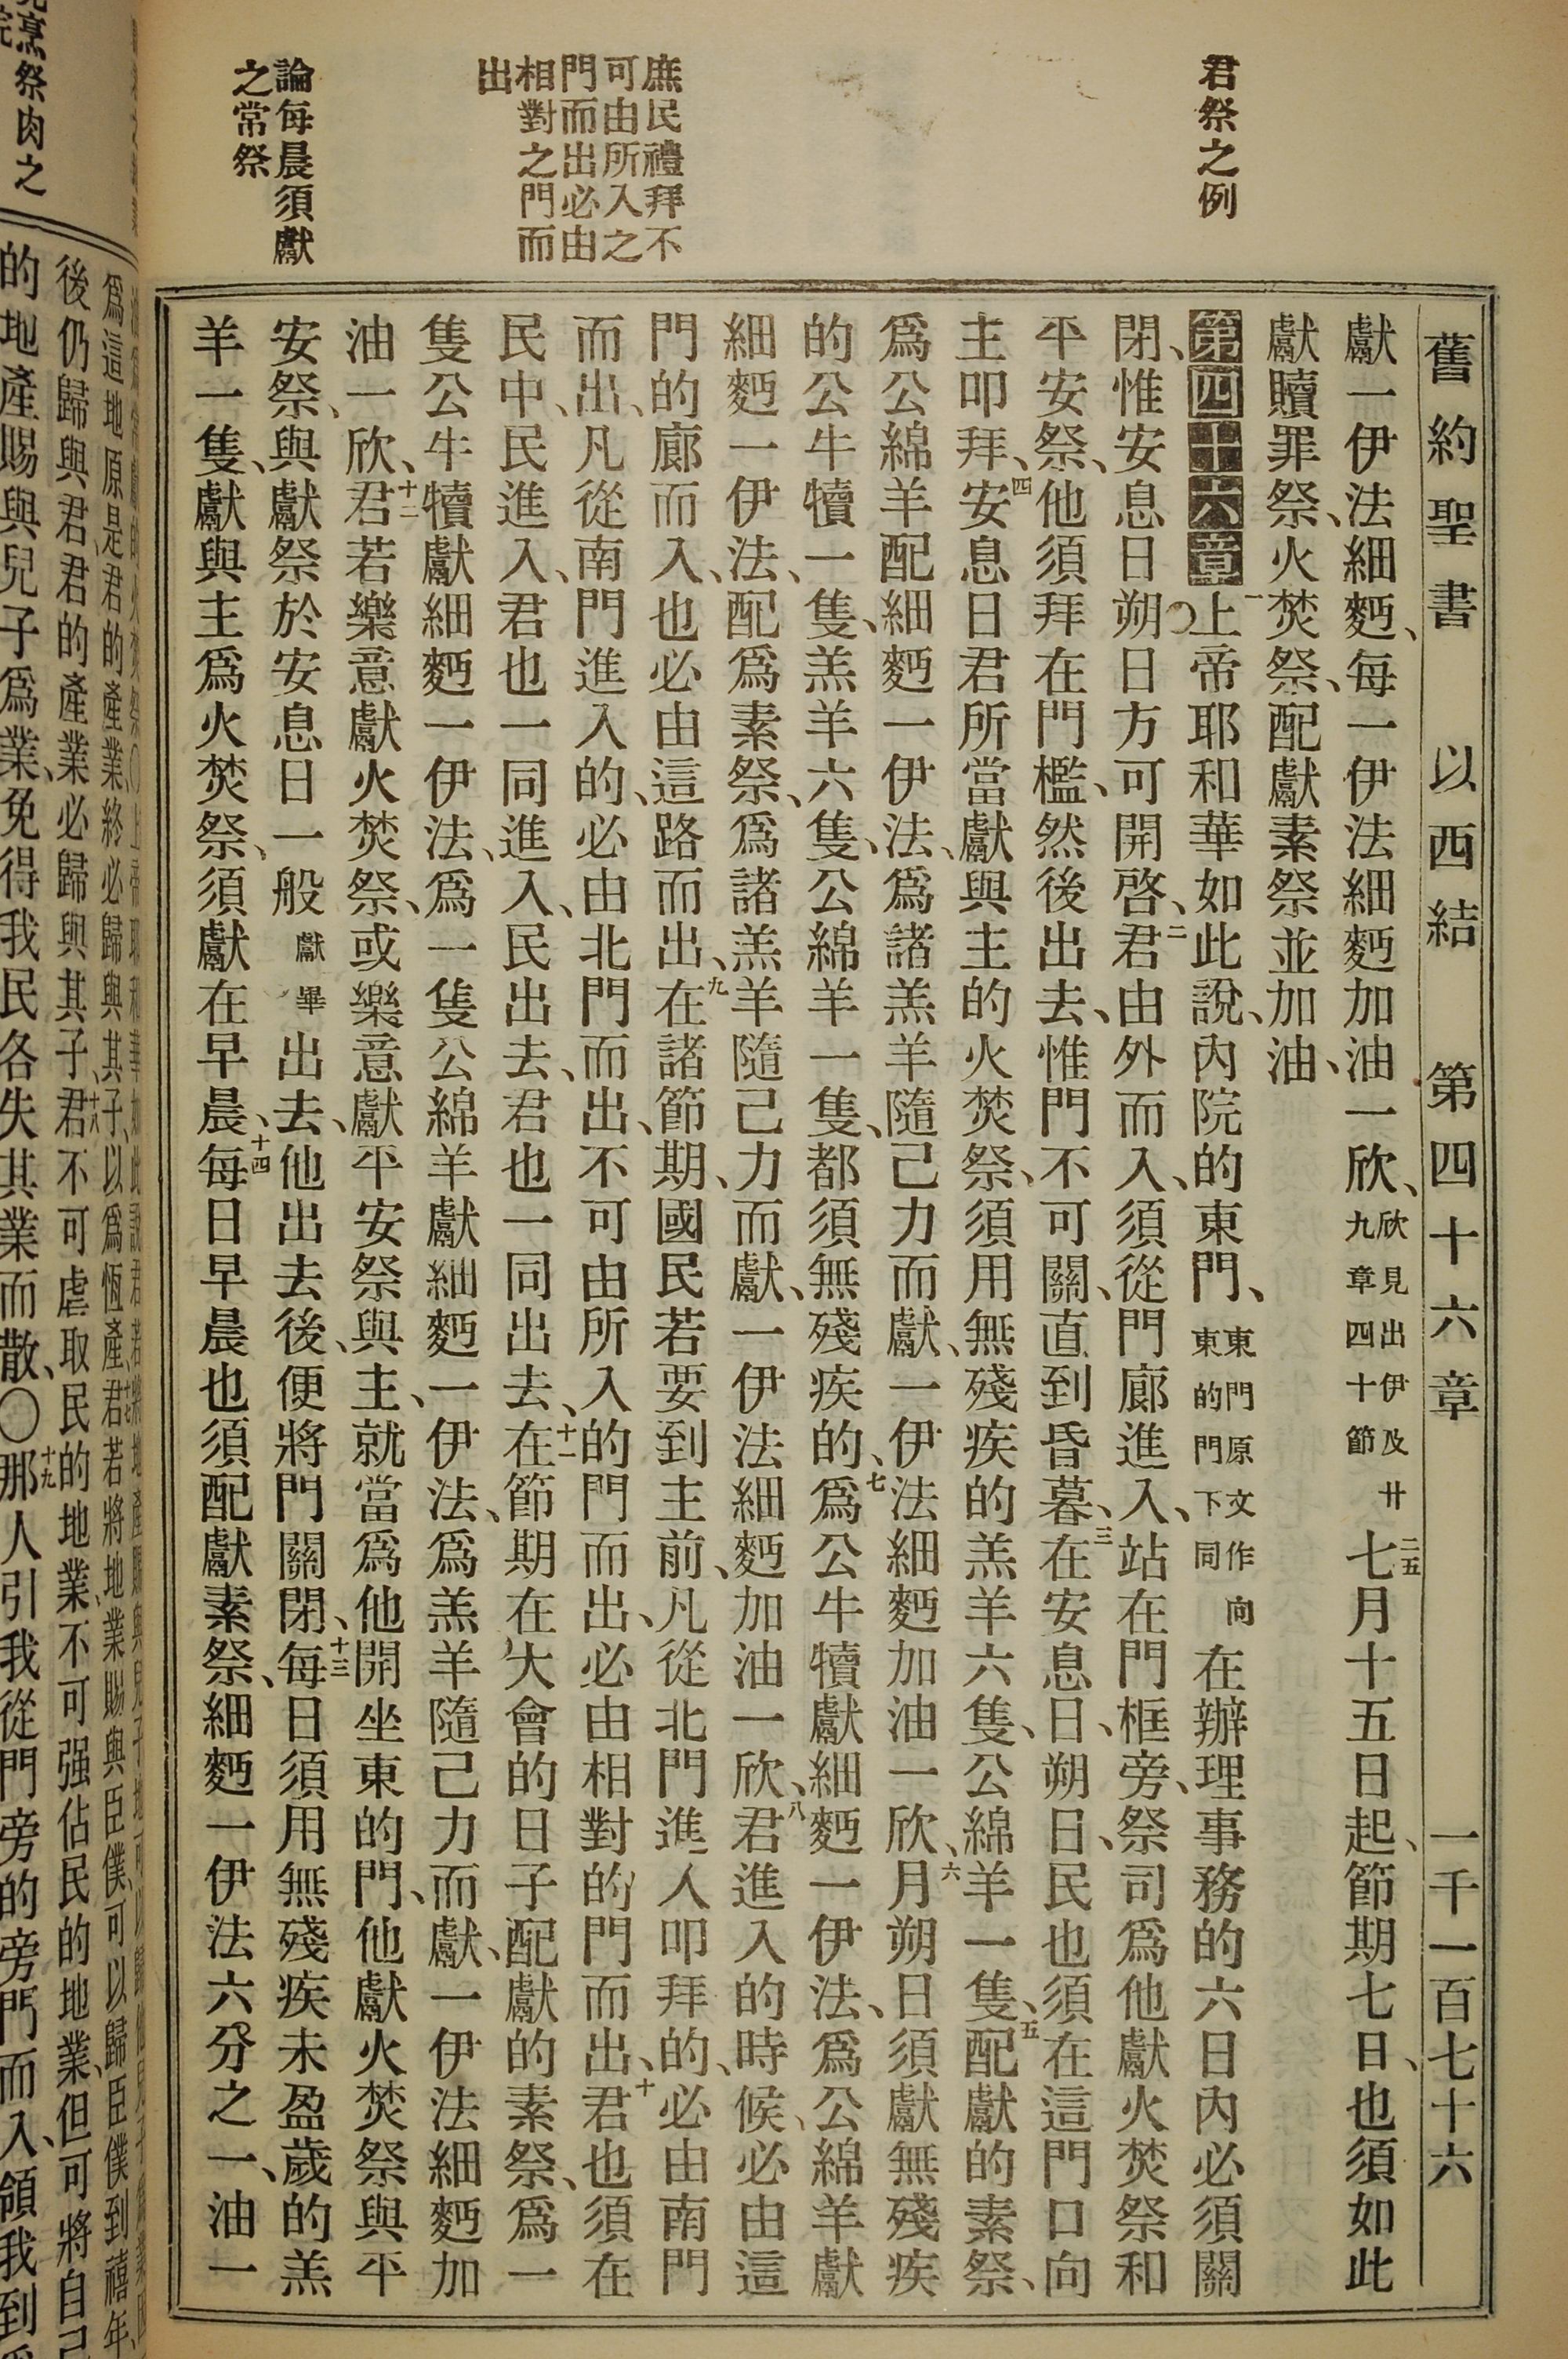 舊約聖書　以西結　第四十六章　一千一百七十六
君祭之例
庶民禮拜不
可由所入之
門而出必由
相對之門而
出
論每晨須獻
之常祭
獻一伊法細麪、每一伊法細麪加油一欣、欣見出伊及廿九章四十節二五七月十五日起、節期七日、也須如此
獻贖罪祭、火焚祭、配獻素祭並加油、
第四十六章一上帝耶和華如此說、內院的東門、東門原文作向東的門下同在辦理事務的六日內必須關
閉、惟安息日朔日方可開啓、二君由外而入、須從門廊進入、站在門框旁、祭司爲他獻火焚祭和
平安祭、他須拜在門檻、然後出去、惟門不可關、直到昏暮、三在安息日、朔日、民也須在這門口向
主叩拜、四安息日君所當獻與主的火焚祭、須用無殘疾的羔羊六隻、公綿羊一隻、五配獻的素祭、
爲公綿羊配細麪一伊法、爲諸羔羊隨己力而獻、一伊法細麪加油一欣、六月朔日須獻無殘疾
的公牛犢一隻、羔羊六隻、公綿羊一隻、都須無殘疾的、七爲公牛犢獻細麪一伊法、爲公綿羊獻
細麪一伊法、配爲素祭、爲諸羔羊隨己力而獻、一伊法細麪加油一欣、八君進入的時候、必由這
門的廊而入、也必由這路而出、九在諸節期、國民若要到主前、凡從北門進入叩拜的、必由南門
而出、凡從南門進入的、必由北門而出、不可由所入的門而出、必由相對的門而出、十君也須在
民中、民進入、君也一同進入、民出去、君也一同出去、十一在節期在大會的日子配獻的素祭、爲一
隻公牛犢獻細麪一伊法、爲一隻公綿羊獻細麪一伊法、爲羔羊隨己力而獻、一伊法細麪加
油一欣、十二君若樂意獻火焚祭、或樂意獻平安祭與主、就當爲他開坐東的門、他獻火焚祭與平
安祭、與獻祭於安息日一般獻畢出去、他出去後、便將門關閉、十三每日須用無殘疾未盈歲的羔
羊一隻、獻與主爲火焚祭、須獻在早晨、十四每日早晨也須配獻素祭、細麪一伊法六分之一、油一
烹祭肉之
後仍歸與君君的產業必歸與其子、十八君不可虐取民的地業、不可强佔民的地業、但可將自己
的地產賜與兒子爲業、免得我民各失其業而散、〇十九那人引我從門旁的旁門而入、領我到